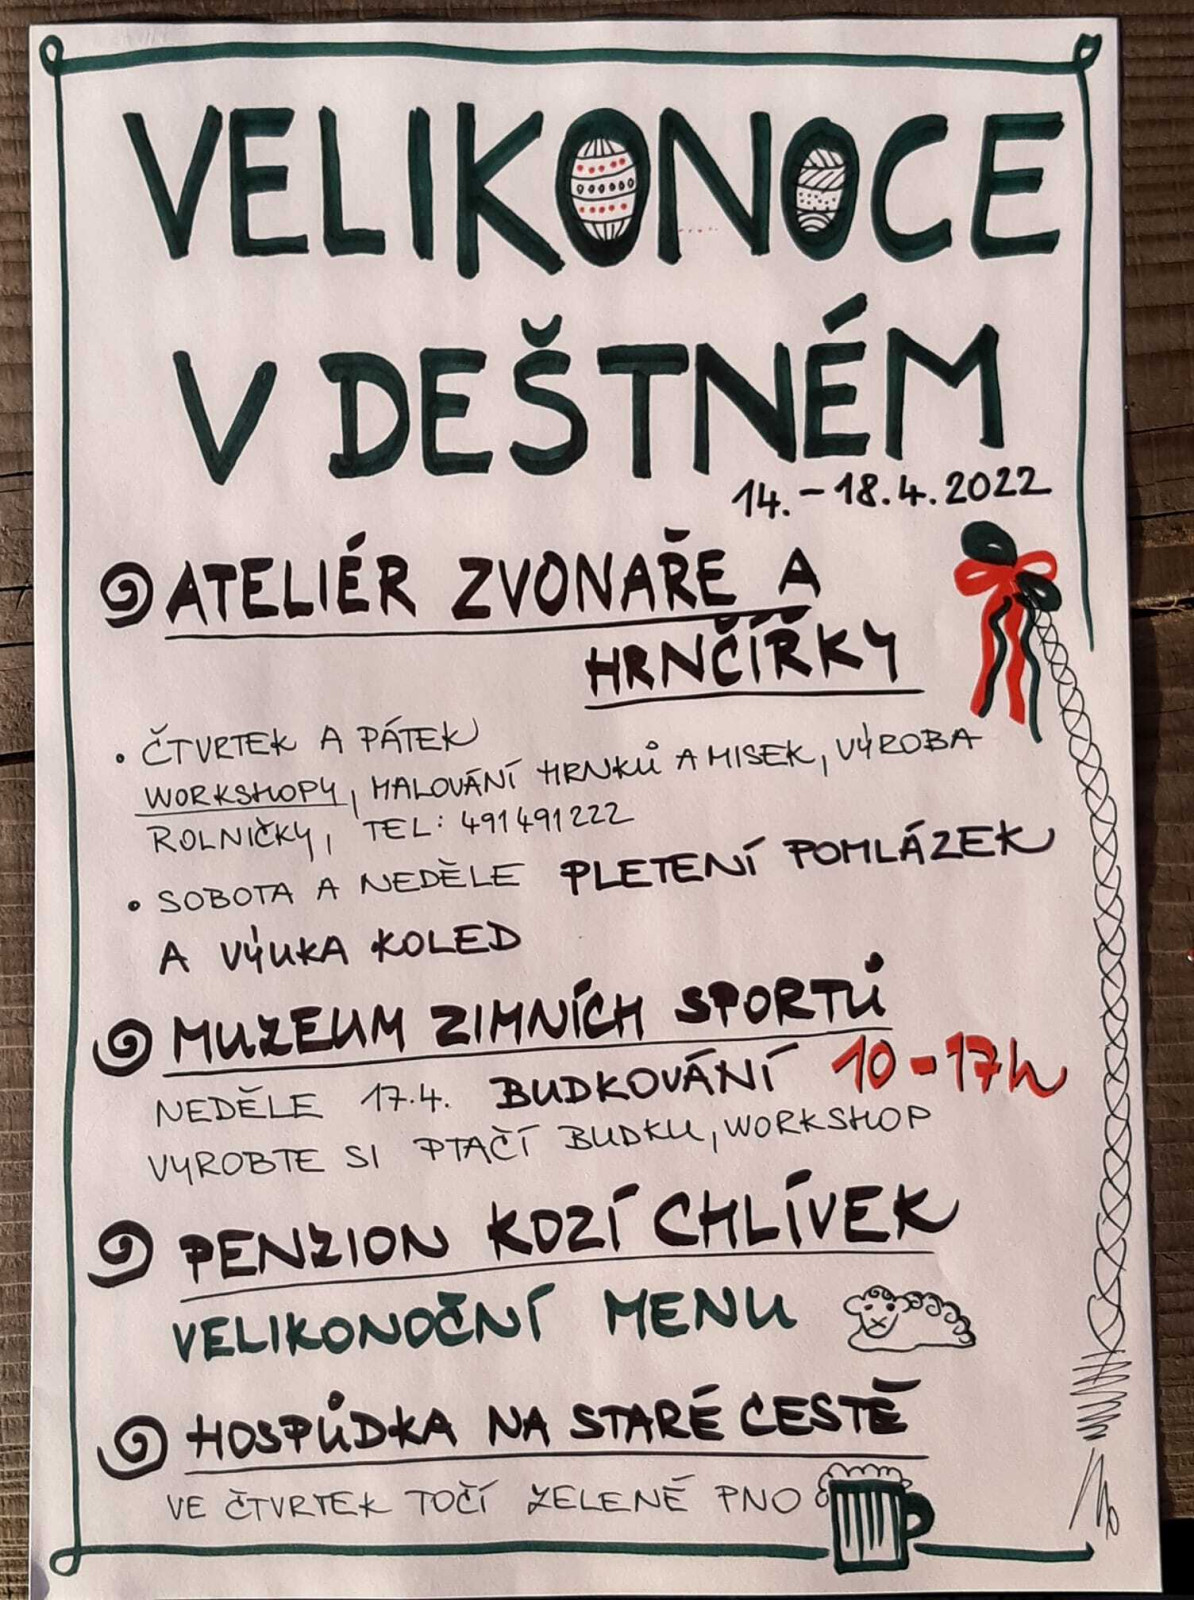 VELIKONOCE
V DEŠTNÉM
14. - 18.4.2022
ATELIÉR ZVONAŘE A
HRNČÍŘKY
• ČTVRTEK A PÁTEK
WORKSHOPY, MALOVÁNÍ HRNKŮ A MISEK, VÝROBA
ROLNIČKY, TEL: 491491222
• SOBOTA A NEDĚLE PLETENÍ POMLÁZEK
A VÝUKA KOLED
MUZEUM ZIMNÍCH SPORTŮ
NEDĚLE 17.4. BUDKOVÁNÍ 10 - 17h
VYROBTE SI PTAČÍ BUDKU, WORKSHOP
PENZION KOZÍ CHLÍVEK
VELIKONOČNÍ MENU
HOSPŮDKA NA STARÉ CESTĚ
VE ČTVRTEK TOČÍ ZELENÉ PNO